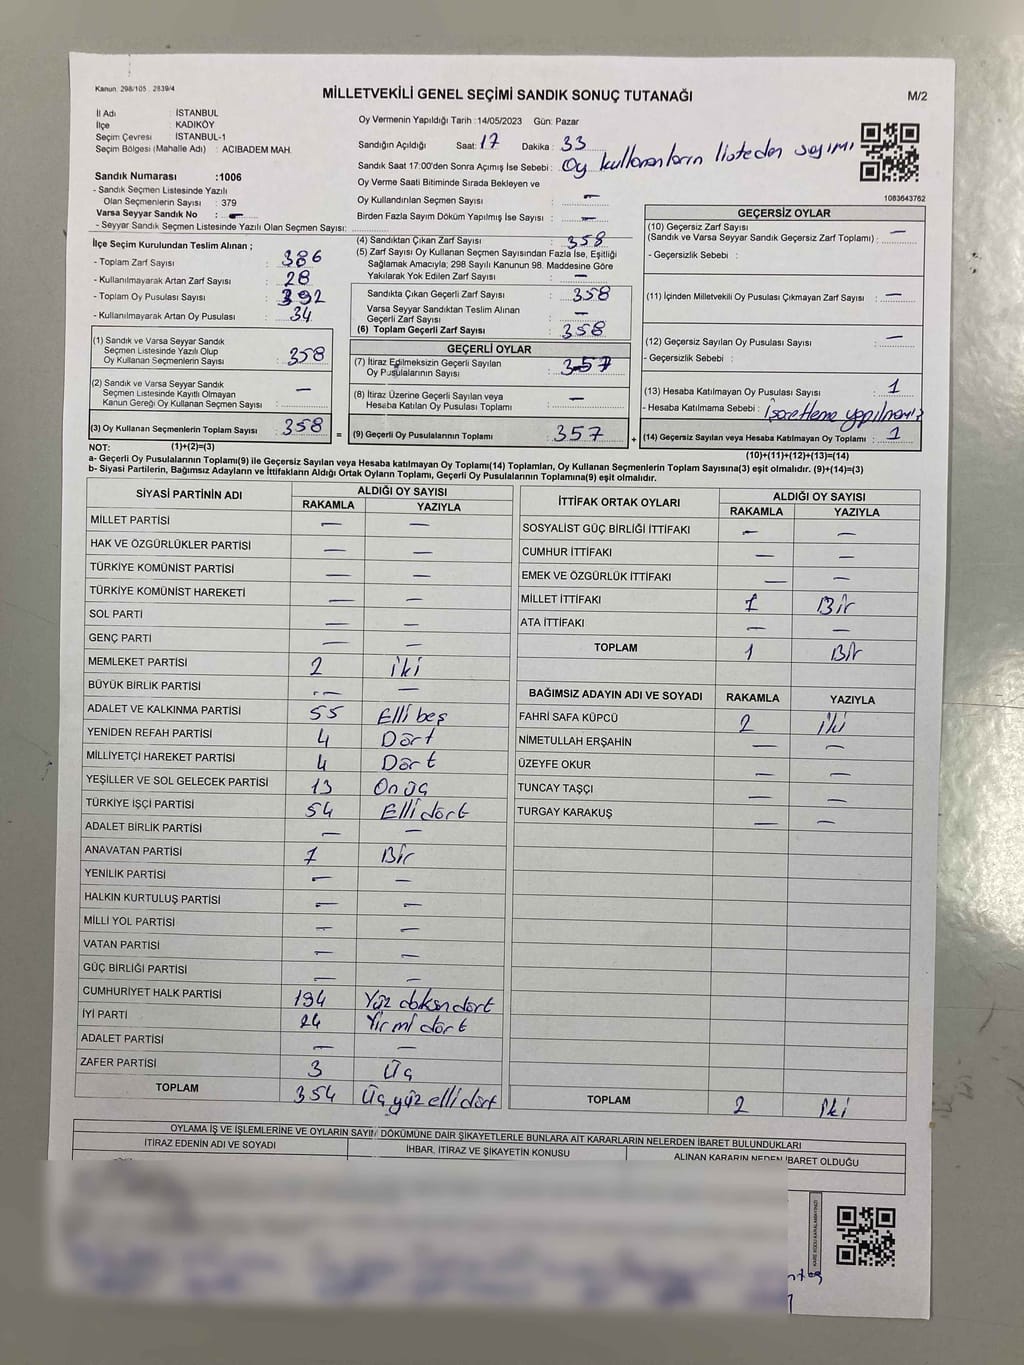 Kanun 298/105 2839/4
MİLLETVEKİLİ GENEL SEÇİMİ SANDIK SONUÇ TUTANAĞI
M/2
İl Adı : İSTANBUL
İlçe : KADIKÖY
Seçim Çevresi : İSTANBUL-1
Seçim Bölgesi (Mahalle Adı) : ACIBADEM MAH.
Sandık Numarası :1006
- Sandık Seçmen Listesinde Yazılı
Olan Seçmenlerin Sayısı : 379
Varsa Seyyar Sandık No : —
- Seyyar Sandık Seçmen Listesinde Yazılı Olan Seçmen Sayısı:
Oy Vermenin Yapıldığı Tarih :14/05/2023 Gün: Pazar
Sandığın Açıldığı Saat: 17 Dakika : 33
Sandık Saat 17:00'den Sonra Açımış İse Sebebi : Oy kullananların listeden sayımı
Oy Verme Saati Bitiminde Sırada Bekleyen ve
Oy Kullandırılan Seçmen Sayısı : —
Birden Fazla Sayım Döküm Yapılmış İse Sayısı : —
1083643762
İlçe Seçim Kurulundan Teslim Alınan ;
- Toplam Zarf Sayısı : 386
- Kullanılmayarak Artan Zarf Sayısı : 28
- Toplam Oy Pusulası Sayısı : 392
- Kullanılmayarak Artan Oy Pusulası : 34
(1) Sandık ve Varsa Seyyar Sandık
Seçmen Listesinde Yazılı Olup
Oy Kullanan Seçmenlerin Sayısı : 358
(2) Sandık ve Varsa Seyyar Sandık
Seçmen Listesinde Kayıtlı Olmayan
Kanun Gereği Oy Kullanan Seçmen Sayısı : —
(3) Oy Kullanan Seçmenlerin Toplam Sayısı : 358
(4) Sandıktan Çıkan Zarf Sayısı : 358
(5) Zarf Sayısı Oy Kullanan Seçmen Sayısından Fazla İse, Eşitliği
Sağlamak Amacıyla; 298 Sayılı Kanunun 98. Maddesine Göre
Yakılarak Yok Edilen Zarf Sayısı : —
Sandıkta Çıkan Geçerli Zarf Sayısı : 358
Varsa Seyyar Sandıktan Teslim Alınan
Geçerli Zarf Sayısı : —
(6) Toplam Geçerli Zarf Sayısı : 358
GEÇERLİ OYLAR
(7) İtiraz Edilmeksizin Geçerli Sayılan
Oy Pusulalarının Sayısı : 357
(8) İtiraz Üzerine Geçerli Sayılan veya
Hesaba Katılan Oy Pusulası Toplamı : —
= (9) Geçerli Oy Pusulalarının Toplamı : 357 +
GEÇERSİZ OYLAR
(10) Geçersiz Zarf Sayısı
(Sandık ve Varsa Seyyar Sandık Geçersiz Zarf Toplamı) : —
- Geçersizlik Sebebi :
(11) İçinden Milletvekili Oy Pusulası Çıkmayan Zarf Sayısı : —
(12) Geçersiz Sayılan Oy Pusulası Sayısı : —
- Geçersizlik Sebebi :
(13) Hesaba Katılmayan Oy Pusulası Sayısı : 1
- Hesaba Katılmama Sebebi : İşaretleme yapılmamış
(14) Geçersiz Sayılan veya Hesaba Katılmayan Oy Toplamı : 1
NOT: (1)+(2)=(3)
(10)+(11)+(12)+(13)=(14)
a- Geçerli Oy Pusulalarının Toplamı(9) ile Geçersiz Sayılan veya Hesaba katılmayan Oy Toplamı(14) Toplamları, Oy Kullanan Seçmenlerin Toplam Sayısına(3) eşit olmalıdır. (9)+(14)=(3)
b- Siyasi Partilerin, Bağımsız Adayların ve İttifakların Aldığı Oyların Toplamı, Geçerli Oy Pusulalarının Toplamına(9) eşit olmalıdır.
SİYASİ PARTİNİN ADI ALDIĞI OY SAYISI
RAKAMLA YAZIYLA
MİLLET PARTİSİ — —
HAK VE ÖZGÜRLÜKLER PARTİSİ — —
TÜRKİYE KOMÜNİST PARTİSİ — —
TÜRKİYE KOMÜNİST HAREKETİ — —
SOL PARTİ — —
GENÇ PARTİ — —
MEMLEKET PARTİSİ 2 iki
BÜYÜK BİRLİK PARTİSİ — —
ADALET VE KALKINMA PARTİSİ 55 Elli beş
YENİDEN REFAH PARTİSİ 4 Dört
MİLLİYETÇİ HAREKET PARTİSİ 4 Dört
YEŞİLLER VE SOL GELECEK PARTİSİ 13 On üç
TÜRKİYE İŞÇİ PARTİSİ 54 Elli dört
ADALET BİRLİK PARTİSİ — —
ANAVATAN PARTİSİ 1 Bir
YENİLİK PARTİSİ — —
HALKIN KURTULUŞ PARTİSİ — —
MİLLİ YOL PARTİSİ — —
VATAN PARTİSİ — —
GÜÇ BİRLİĞİ PARTİSİ — —
CUMHURİYET HALK PARTİSİ 194 Yüz doksan dört
İYİ PARTİ 24 Yirmi dört
ADALET PARTİSİ — —
ZAFER PARTİSİ 3 Üç
TOPLAM 354 Üç yüz elli dört
İTTİFAK ORTAK OYLARI ALDIĞI OY SAYISI
RAKAMLA YAZIYLA
SOSYALİST GÜÇ BİRLİĞİ İTTİFAKI — —
CUMHUR İTTİFAKI — —
EMEK VE ÖZGÜRLÜK İTTİFAKI — —
MİLLET İTTİFAKI 1 Bir
ATA İTTİFAKI — —
TOPLAM 1 Bir
BAĞIMSIZ ADAYIN ADI VE SOYADI RAKAMLA YAZIYLA
FAHRİ SAFA KÜPCÜ 2 iki
NİMETULLAH ERŞAHİN — —
ÜZEYFE OKUR — —
TUNCAY TAŞÇI — —
TURGAY KARAKUŞ — —
TOPLAM 2 iki
OYLAMA İŞ VE İŞLEMLERİNE VE OYLARIN SAYIM DÖKÜMÜNE DAİR ŞİKAYETLERLE BUNLARA AİT KARARLARIN NELERDEN İBARET BULUNDUKLARI
İTİRAZ EDENİN ADI VE SOYADI İHBAR, İTİRAZ VE ŞİKAYETİN KONUSU ALINAN KARARIN NEDEN İBARET OLDUĞU
KARE KODU KARALAMAYINIZ!